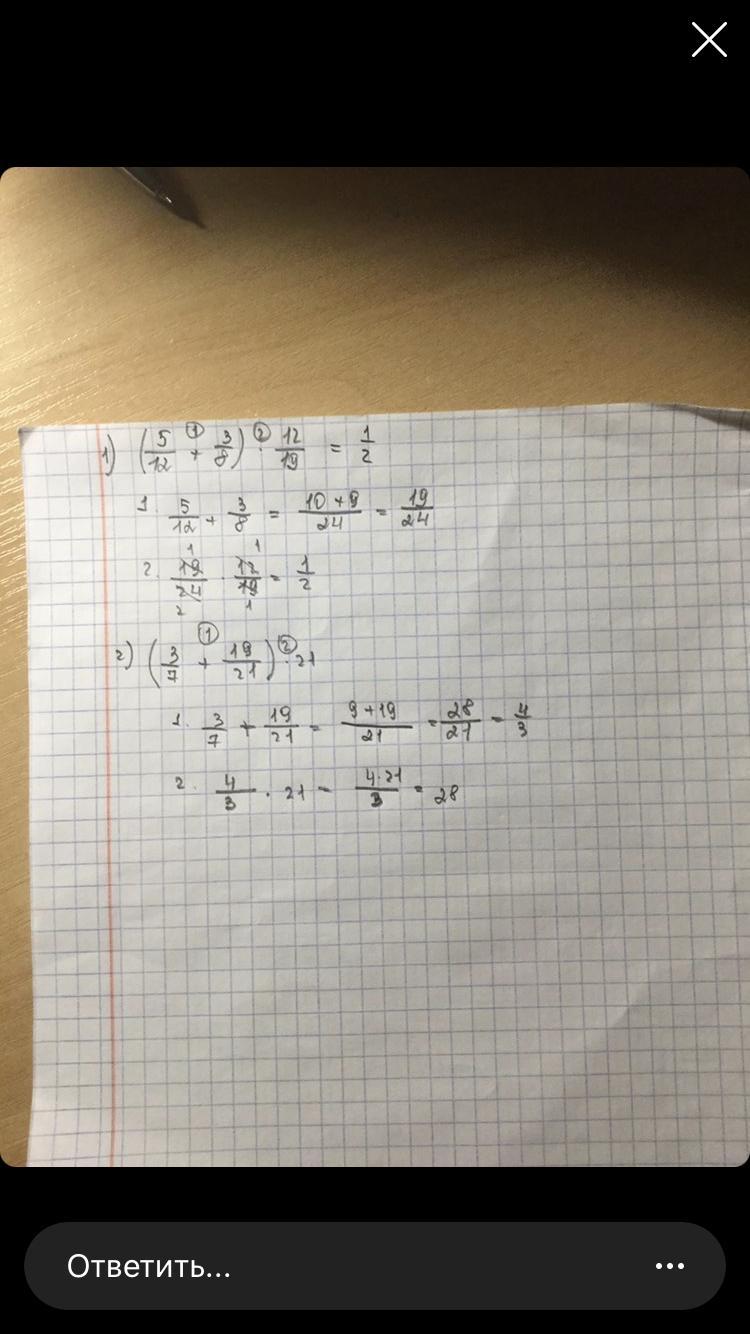 1) (5/12 + 3/8) · 12/19 = 1/2
① ②
1. 5/12 + 3/8 = 10+9/24 = 19/24
2. 19/24 · 12/19 = 1/2
1 1
2 1
2) (3/7 + 19/21) · 21
① ②
1. 3/7 + 19/21 = 9+19/21 = 28/21 = 4/3
2. 4/3 · 21 = 4·21/3 = 28
Ответить...